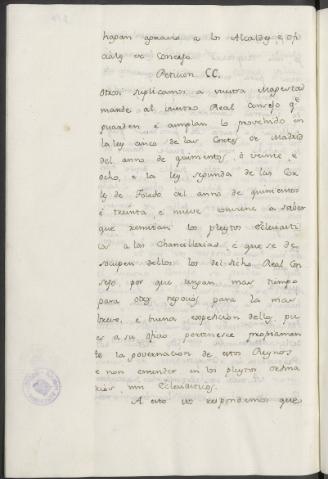 hagan agravio a los Alcaldes, e ofi
ciales de Concejo.
Peticion CC.
Otrosi suplicamos a vuestra Magestad
mande al vuestro Real Consejo qe
guarden e cumplan lo proveido en
la ley cinco de las Cortes de Madrid
del anno de quinientos e veinte e
ocho, e la ley segunda de las Cor
tes de Toledo del anno de quinientos
e treinta, e nueve conviene a saber
que remitan los pleytos Eclesiasti
cos a las Chancillerias, e que se de
socupen dellos los del dicho Real Con
sejo por que tengan mas tiempo
para otros negocios para la mas
breve, e buena expedicion dellos, pu
es a su oficio pertenesce propriamen
te la governacion de estos Reynos
e non entender in los pleytos ordina
rios, nin Eclesiasticos.
A esto vos respondemos que